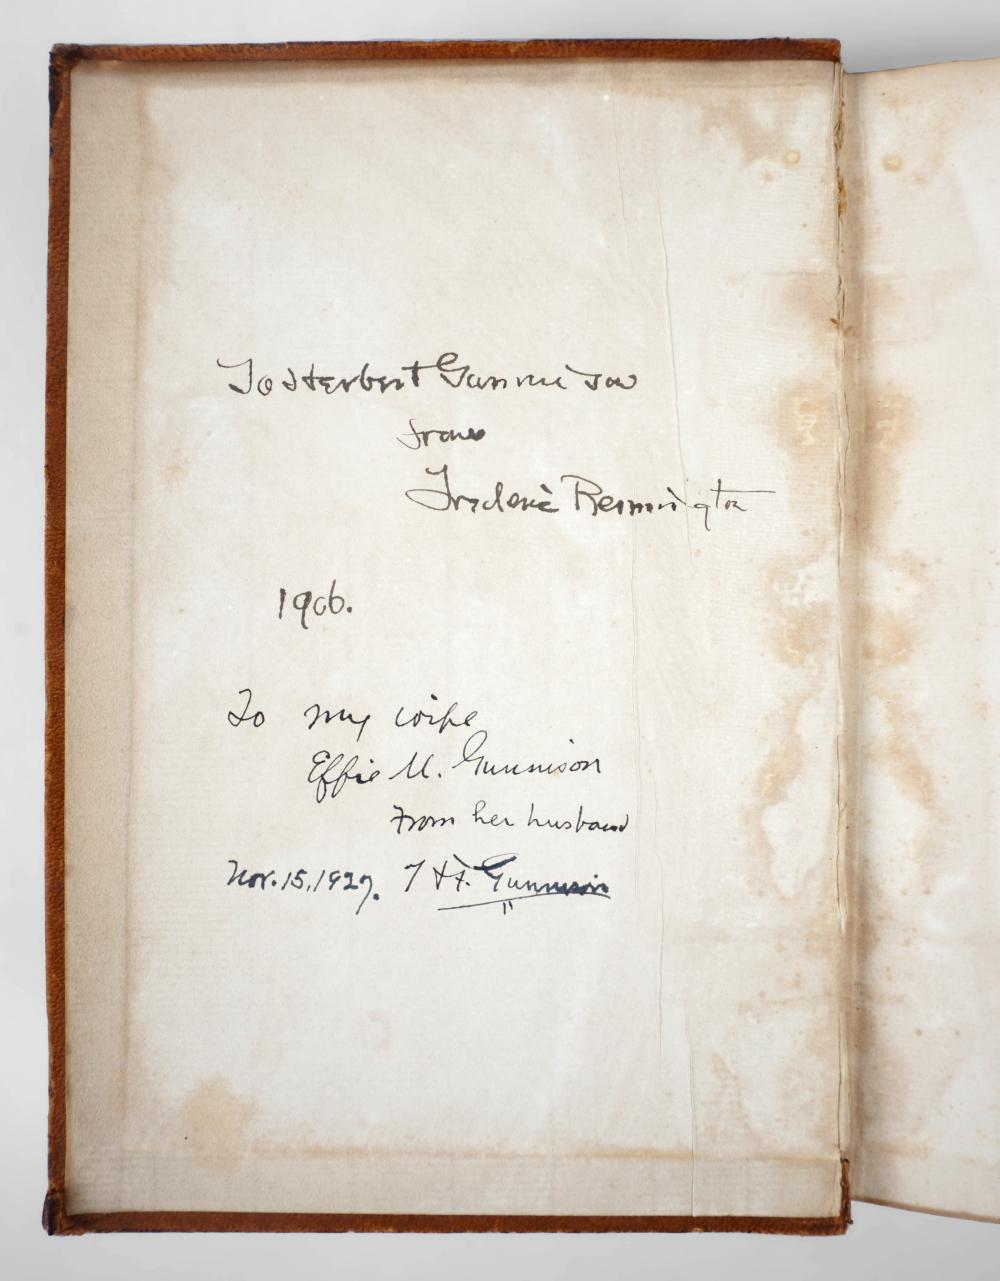 To Herbert Gunnison
from
Frederic Remington
1906.
To my wife
Effie M. Gunnison
From her husband
Nov. 15, 1927. H. F. Gunnison